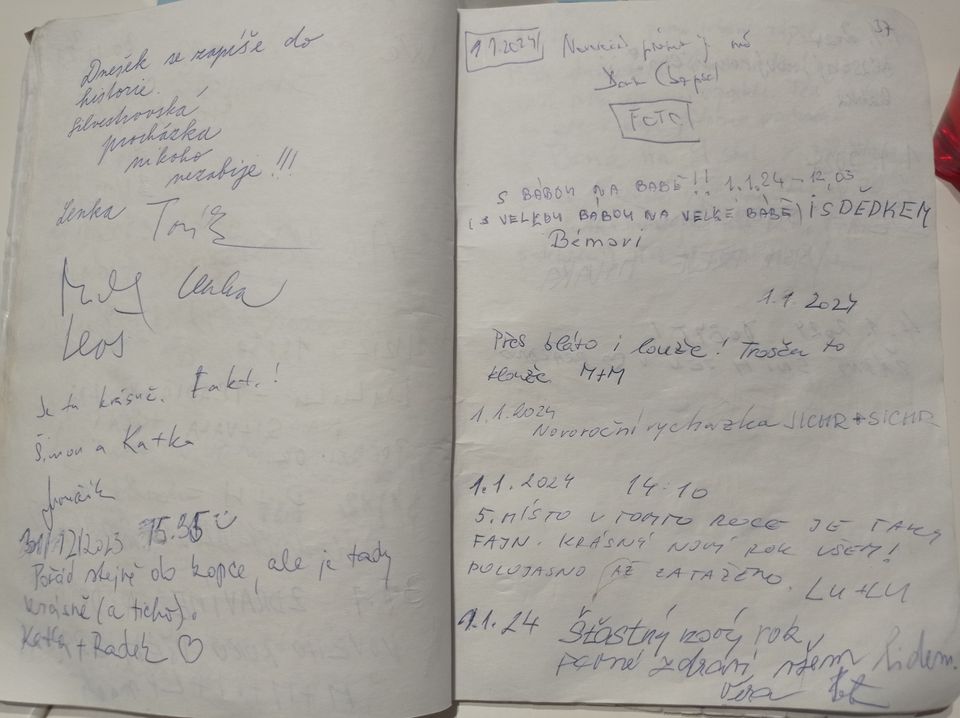 Dnešek se zapíše do
historie.
Silvestrovská
procházka
nikoho
nezabije !!!
Lenka
Lenka
Leoš
Je tu krásně. Fakt. !
Šimon a Katka
31/12/2023 15.35
Pořád stejně do kopce, ale je tady
krásně (a ticho).
Katka + Radek ♡
37
1.1.2024
FOTO
S BÁBOU NA BÁBĚ!! 1.1.24 - 12,03
(S VELKOU BÁBOU NA VELKÉ BÁBĚ) i S DĚDKEM
Bémovi
1.1.2024
Přes bláto i louže! Trošču to
klouže. M+M
1.1.2024
Novoroční vycházka SICHR + SICHR
1.1.2024 14:10
5. MÍSTO V TOMTO ROCE JE TAKY
FAJN. KRÁSNÝ NOVÝ ROK VŠEM!
POLOJASNO AŽ ZATAŽENO. LU+LU
1.1.24 Šťastný nový rok,
pevné zdraví všem lidem.
Věra